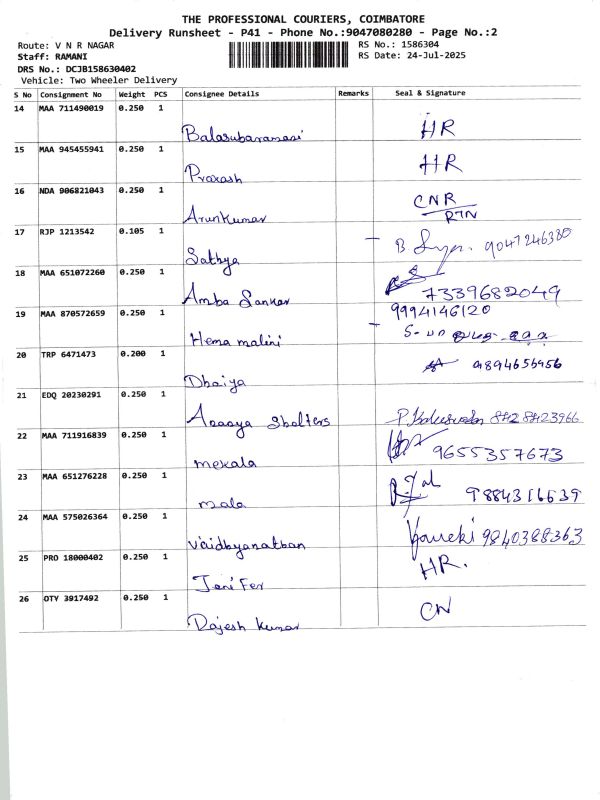 THE PROFESSIONAL COURIERS, COIMBATORE
Delivery Runsheet - P41 - Phone No.:9047080280 - Page No.:2
Route: V N R NAGAR
RS No.: 1586304
Staff: RAMANI
RS Date: 24-Jul-2025
DRS No.: DCJB158630402
Vehicle: Two Wheeler Delivery
S No Consignment No Weight PCS Consignee Details Remarks Seal & Signature
14 MAA 711490019 0.250 1
HR
15 MAA 945455941 0.250 1
Prakash HR
16 NDA 906821043 0.250 1
Arunkumar CNR
RTN
17 RJP 1213542 0.105 1
Sathya 9047246380
18 MAA 651072260 0.250 1
Amba Sankar 7339682049
19 MAA 870572659 0.250 1 9994146120
Hema malini
20 TRP 6471473 0.200 1
9894656956
21 EDQ 20230291 0.250 1
8428423966
22 MAA 711916839 0.250 1
mekala 9655357673
23 MAA 651276228 0.250 1
mala
24 MAA 575026364 0.250 1
Vaidhyanathan 9840388363
25 PRO 18000402 0.250 1
Jenifer HR.
26 OTY 3917492 0.250 1
Rajesh kumar CN